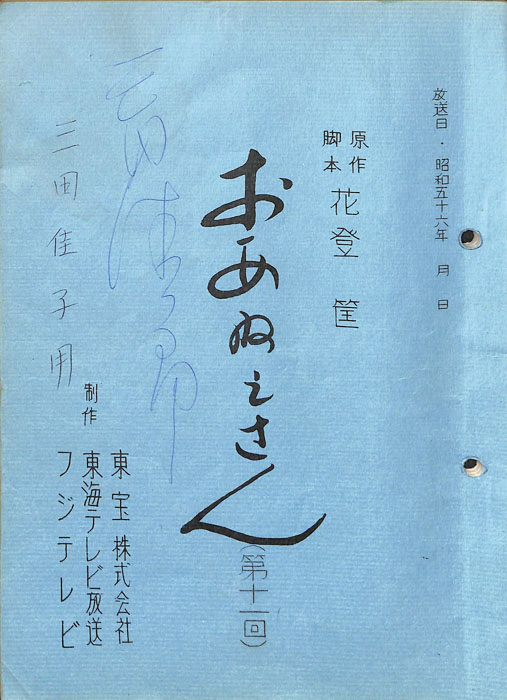 放送日・昭和五十六年 月 日
原作
脚本
花登筐
おあねえさん
(第十一回)
制作
東宝株式会社
東海テレビ放送
フジテレビ
三田佳子用